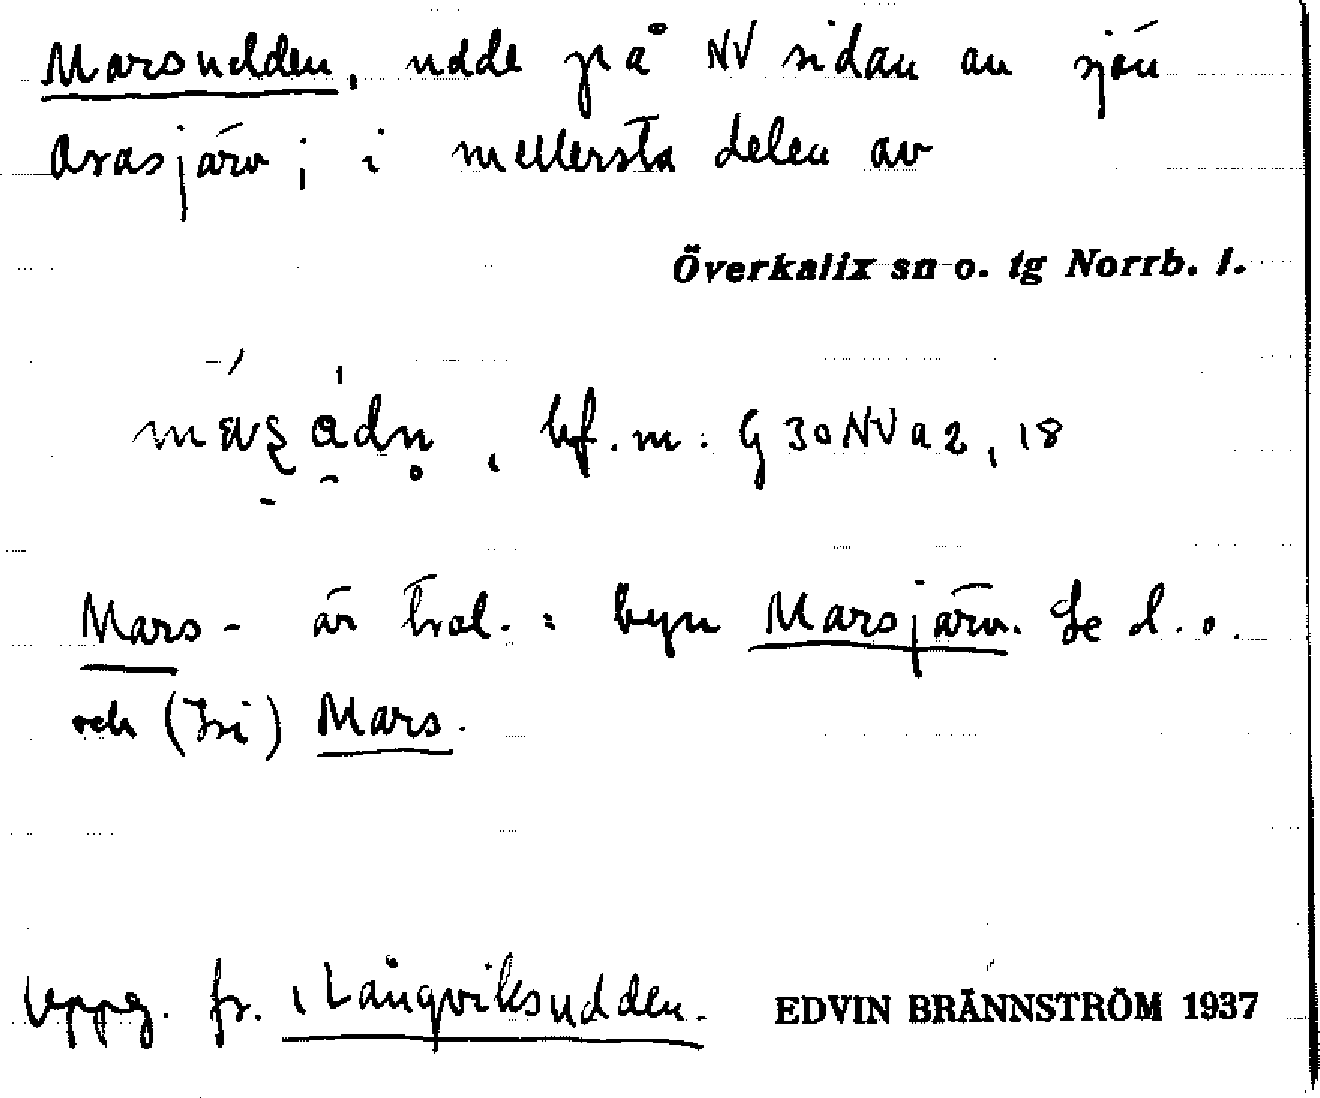 Marsudden, udde på NV sidan av sjön
Arasjärv; i mellersta delen av
Överkalix sn o. tg Norrb. l.
bf. m: G 30 NV a 2, 18
Mars- är trol. = byn Marsjärv. Se d. o.
och (Tri) Mars.
Uppg. fr. Långviksudden. EDVIN BRÄNNSTRÖM 1937